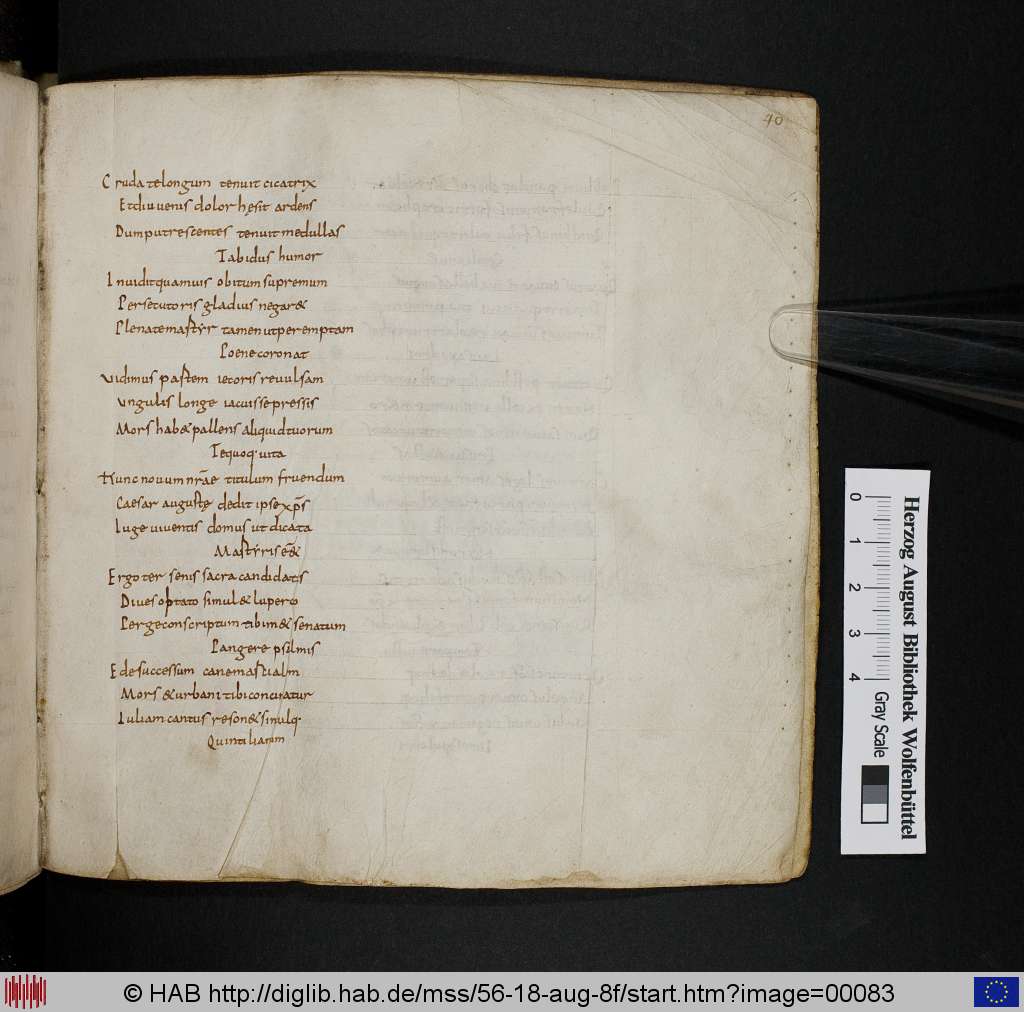 40
Cruda te longum tenuit cicatrix
Et diu venis dolor hęsit ardens
Dum putrescentes tenuit medullas
Tabidus humor
Inviditquamuis obitum supremum
Persetutoris gladius negar&
Plena te mastyr tamen ut peremptam
Poene coronat
Vidimus pastem iecoris revulsam
Ungulis longe iacuisse pressis
Mors hab& pallens aliquid tuorum
Te quoq· viva
Hunc novum nr̄ae titulum fruendum
Caesar auguste dedit ipse xp̄s
Iuge viventis domus ut dicata
Mastyris ē&
Ergo ter senis sacra candidatis
Dives optato simul & lupero
Perge conscriptum tibim& senatum
Pangere psalmis
Ede successum cane mastialm
Mors & urbani tibi concinatur
Iuliam cantus reson& simulq·
Quintilianm
0 1 2 3 4
Gray Scale
Herzog August Bibliothek Wolfenbüttel
© HAB http://diglib.hab.de/mss/56-18-aug-8f/start.htm?image=00083